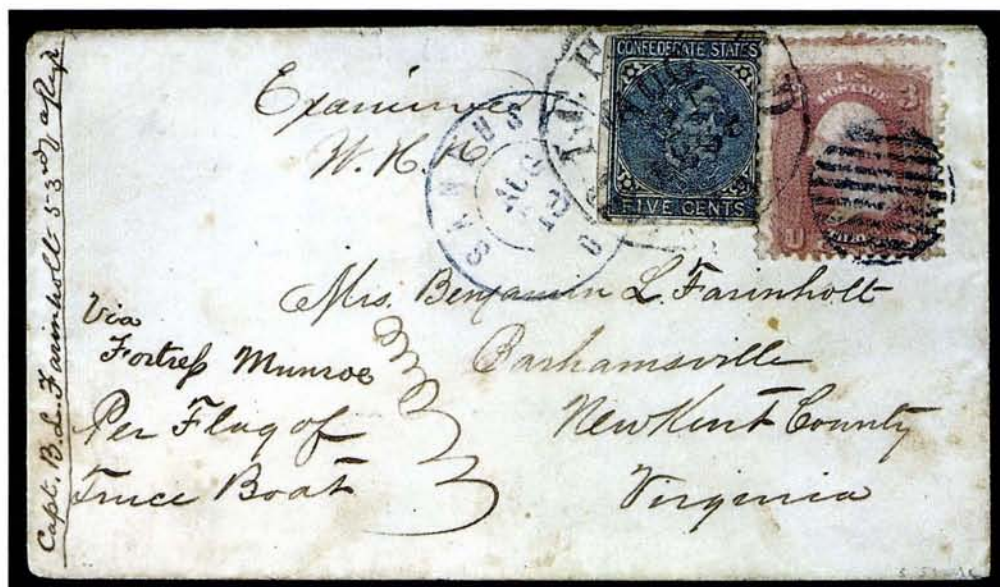 Capt. B. L. Farinholt 53rd Va Regt
Examined
W. H. K.
SANDUS O
AUG
12
CONFEDERATE STATES
FIVE CENTS
U.S.
POSTAGE
3
U
Mrs. Benjamin L. Farinholt
Barhamsville
New Kent County
Virginia
Via
Fortress Munroe
Per Flag of
Truce Boat